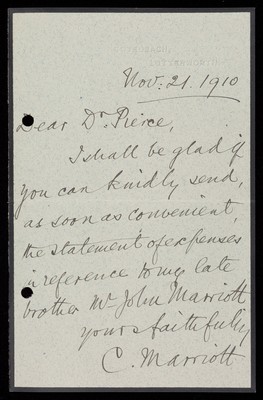 Nov: 21. 1910
Dear Dr. Pierce,
I shall be glad if
you can kindly send,
as soon as convenient,
the statement of expenses
in reference to my late
brother Mr John Marriott
yours faithfully
C. Marriott